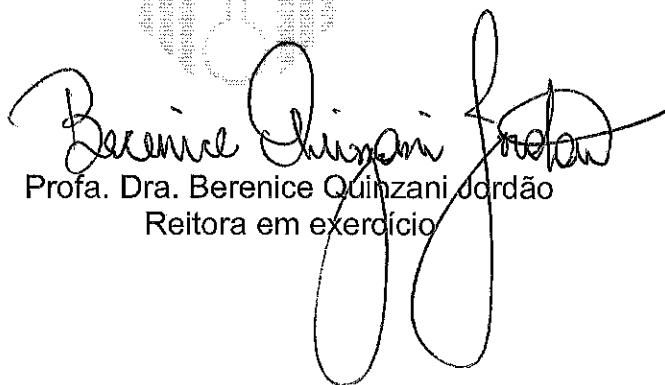 Berenice Quinzani Jordão
Profa. Dra. Berenice Quinzani Jordão
Reitora em exercício